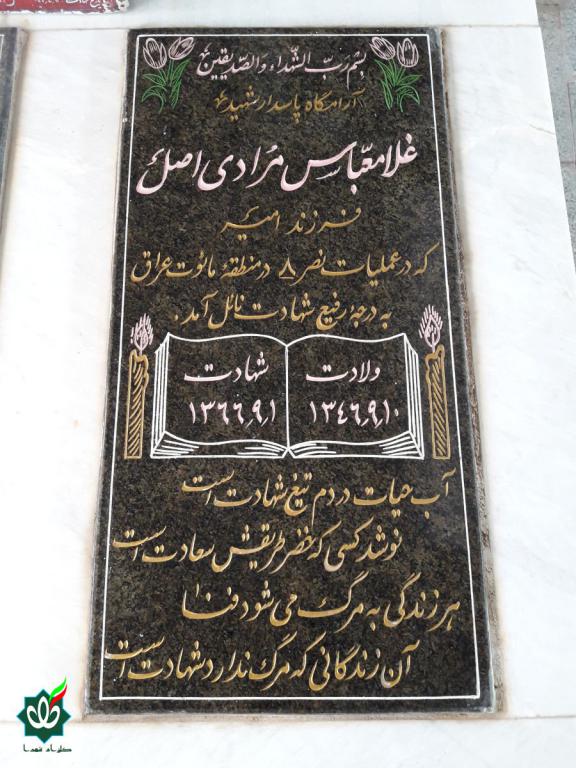 بسم رب الشهداء والصدیقین
آرامگاه پاسدار شهید
غلامعباس مرادی اصل
فرزند امیر
که در عملیات نصر ۸ در منطقهٔ مائوت عراق
به درجهٔ رفیع شهادت نائل آمد.
ولادت
۱۳۴۶٫۹٫۱۰
شهادت
۱۳۶۶٫۹٫۱
آب حیات در دم تیغ شهادت است
نوشد کسی که خضر طریقش سعادت است
هر زندگی به مرگ می شود فنا
آن زندگانی که مرگ ندارد شهادت است
گلزار شهدا